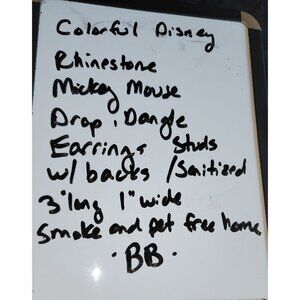 Colorful Disney
Rhinestone
Mickey Mouse
Drop, Dangle
Earrings Studs
w/ backs /Sanitized
3"long 1" wide
Smoke and pet free home
·BB·